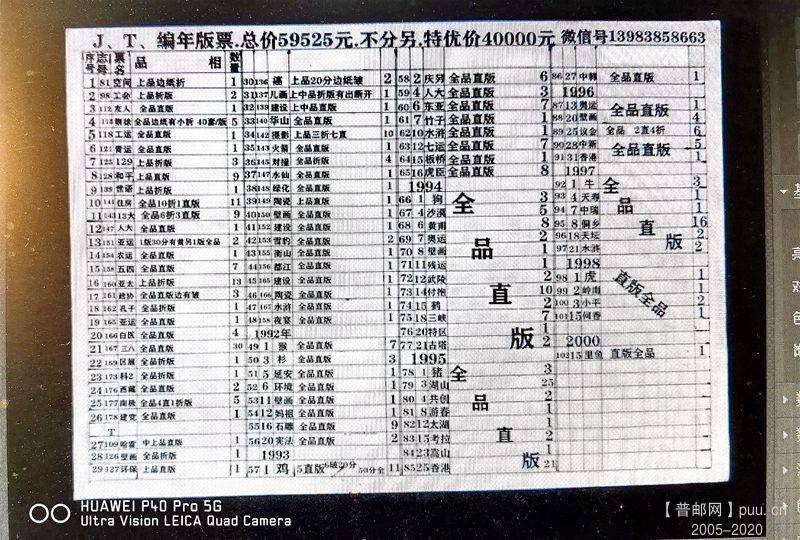 J、T、编年版票.总价59525元.不分另.特优价40000元 微信号13983858663
序号 志号 票名 品 相 数量
1 81 空间 上品边纸折 1
2 98 工会 上品折版 2
3 112 友人 全品直版 1
4 113 钢琴 全品边纸有小折 40套/版 5
5 118 工运 全品直版 1
6 121 青运 全品直版 1
7 125 129 上品折版 3
8 128 和平 上品直版 9
9 139 世语 上品折版 1
10 141 住房 全品10折1直版 11
11 143 13大 全品6折3直版 9
12 147 人大 全品直版 1
13 151 亚运 1版30分有黄另1版全品 2
14 154 农运 全品直版 1
15 158 五四 全品直版 7
16 160 亚太 上品折版 13
17 161 政协 全品直版边有皱 3
18 162 孔子 全品直版 1
19 165 亚运 全品直版 1
20 166 白医 全品直版 4
21 167 三八 全品直版 30
22 169 区展 全品折版 1
23 173 科2 全品折版 1
24 176 西藏 全品直版 2
25 177 南极 全品4直1折版 5
26 178 建党 全品直版 1
T
27 109 哈雷 中上品直版 1
28 126 壁画 全品折版 1
29 127 环保 上品直版 1
30 136 癌 上品20分边纸皱 2
31 137 儿画 上中品折版有出断开 1
32 139 建设 上中品直版 1
33 140 华山 全品直版 1
34 142 摄影 上品三折七直 10
35 143 火箭 全品直版 1
36 145 对撞 全品折版 4
37 147 水仙 全品直版 1
38 148 绿化 全品直版 1
39 149 陶瓷 上品折版 1
40 150 壁画 全品直版 1
41 152 建设 全品直版 1
42 153 雪豹 全品直版 2
43 155 衡山 全品直版 1
44 156 都江 全品直版 1
45 165 建设 全品直版 1
46 166 陶瓷 全品直版 3
47 167 水浒 全品直版 1
48 158 夜宴 全品直版 1
1992年
49 1 猴 全品直版 7
50 3 杉 全品直版 3
51 5 延安 全品直版 1
52 6 环境 全品直版 1
53 11 壁画 全品直版 1
54 12 妈祖 全品直版 1
55 16 石雕 全品直版 9
56 20 宪法 全品直版 2
1993
57 1 鸡 5直版 50分全 11
58 2 庆另 全品直版 6
59 4 人大 全品直版 3
60 6 东亚 全品直版 1
61 7 竹子 全品直版 4
62 10 水浒 全品直版 1
63 12 七运 全品直版 7
64 15 板桥 全品直版 1
65 16 虎臣 全品直版 8
1994
全品直版
66 1 狗 3
67 4 沙漠 5
68 6 黄甫 8
69 7 奥运 2
70 8 壁画
71 11 残运
72 12 武陵 2
73 14 付抱 10
74 15 鹤 2
75 18 三峡 7
76 20 特区 1
77 21 古塔 2
1995
全品直版
78 1 猪 3
79 3 湖山 25
80 4 共创 2
81 8 游春 1
82 12 太湖 1
83 15 考拉 2
84 23 嵩山
85 25 香港 21
86 27 中韩 全品直版 1
1996
87 13 奥运 全品直版 1
88 20 壁画 1
89 25 议会 全品 2直4折 6
90 28 中新 全品直版 5
91 31 香港 1
1997
全品直版
92 1 牛 3
93 4 天寿 1
94 7 中瑞 1
95 8 侗乡 16
96 18 天坛 2
97 21 水浒 2
1998
直版全品
98 1 虎 1
99 2 岭南 1
100 3 小平 2
101 15 何香 1
2000
102 15 里鱼 直版全品 1
HUAWEI P40 Pro 5G
Ultra Vision LEICA Quad Camera
【普邮网】puu.cn
2005-2020